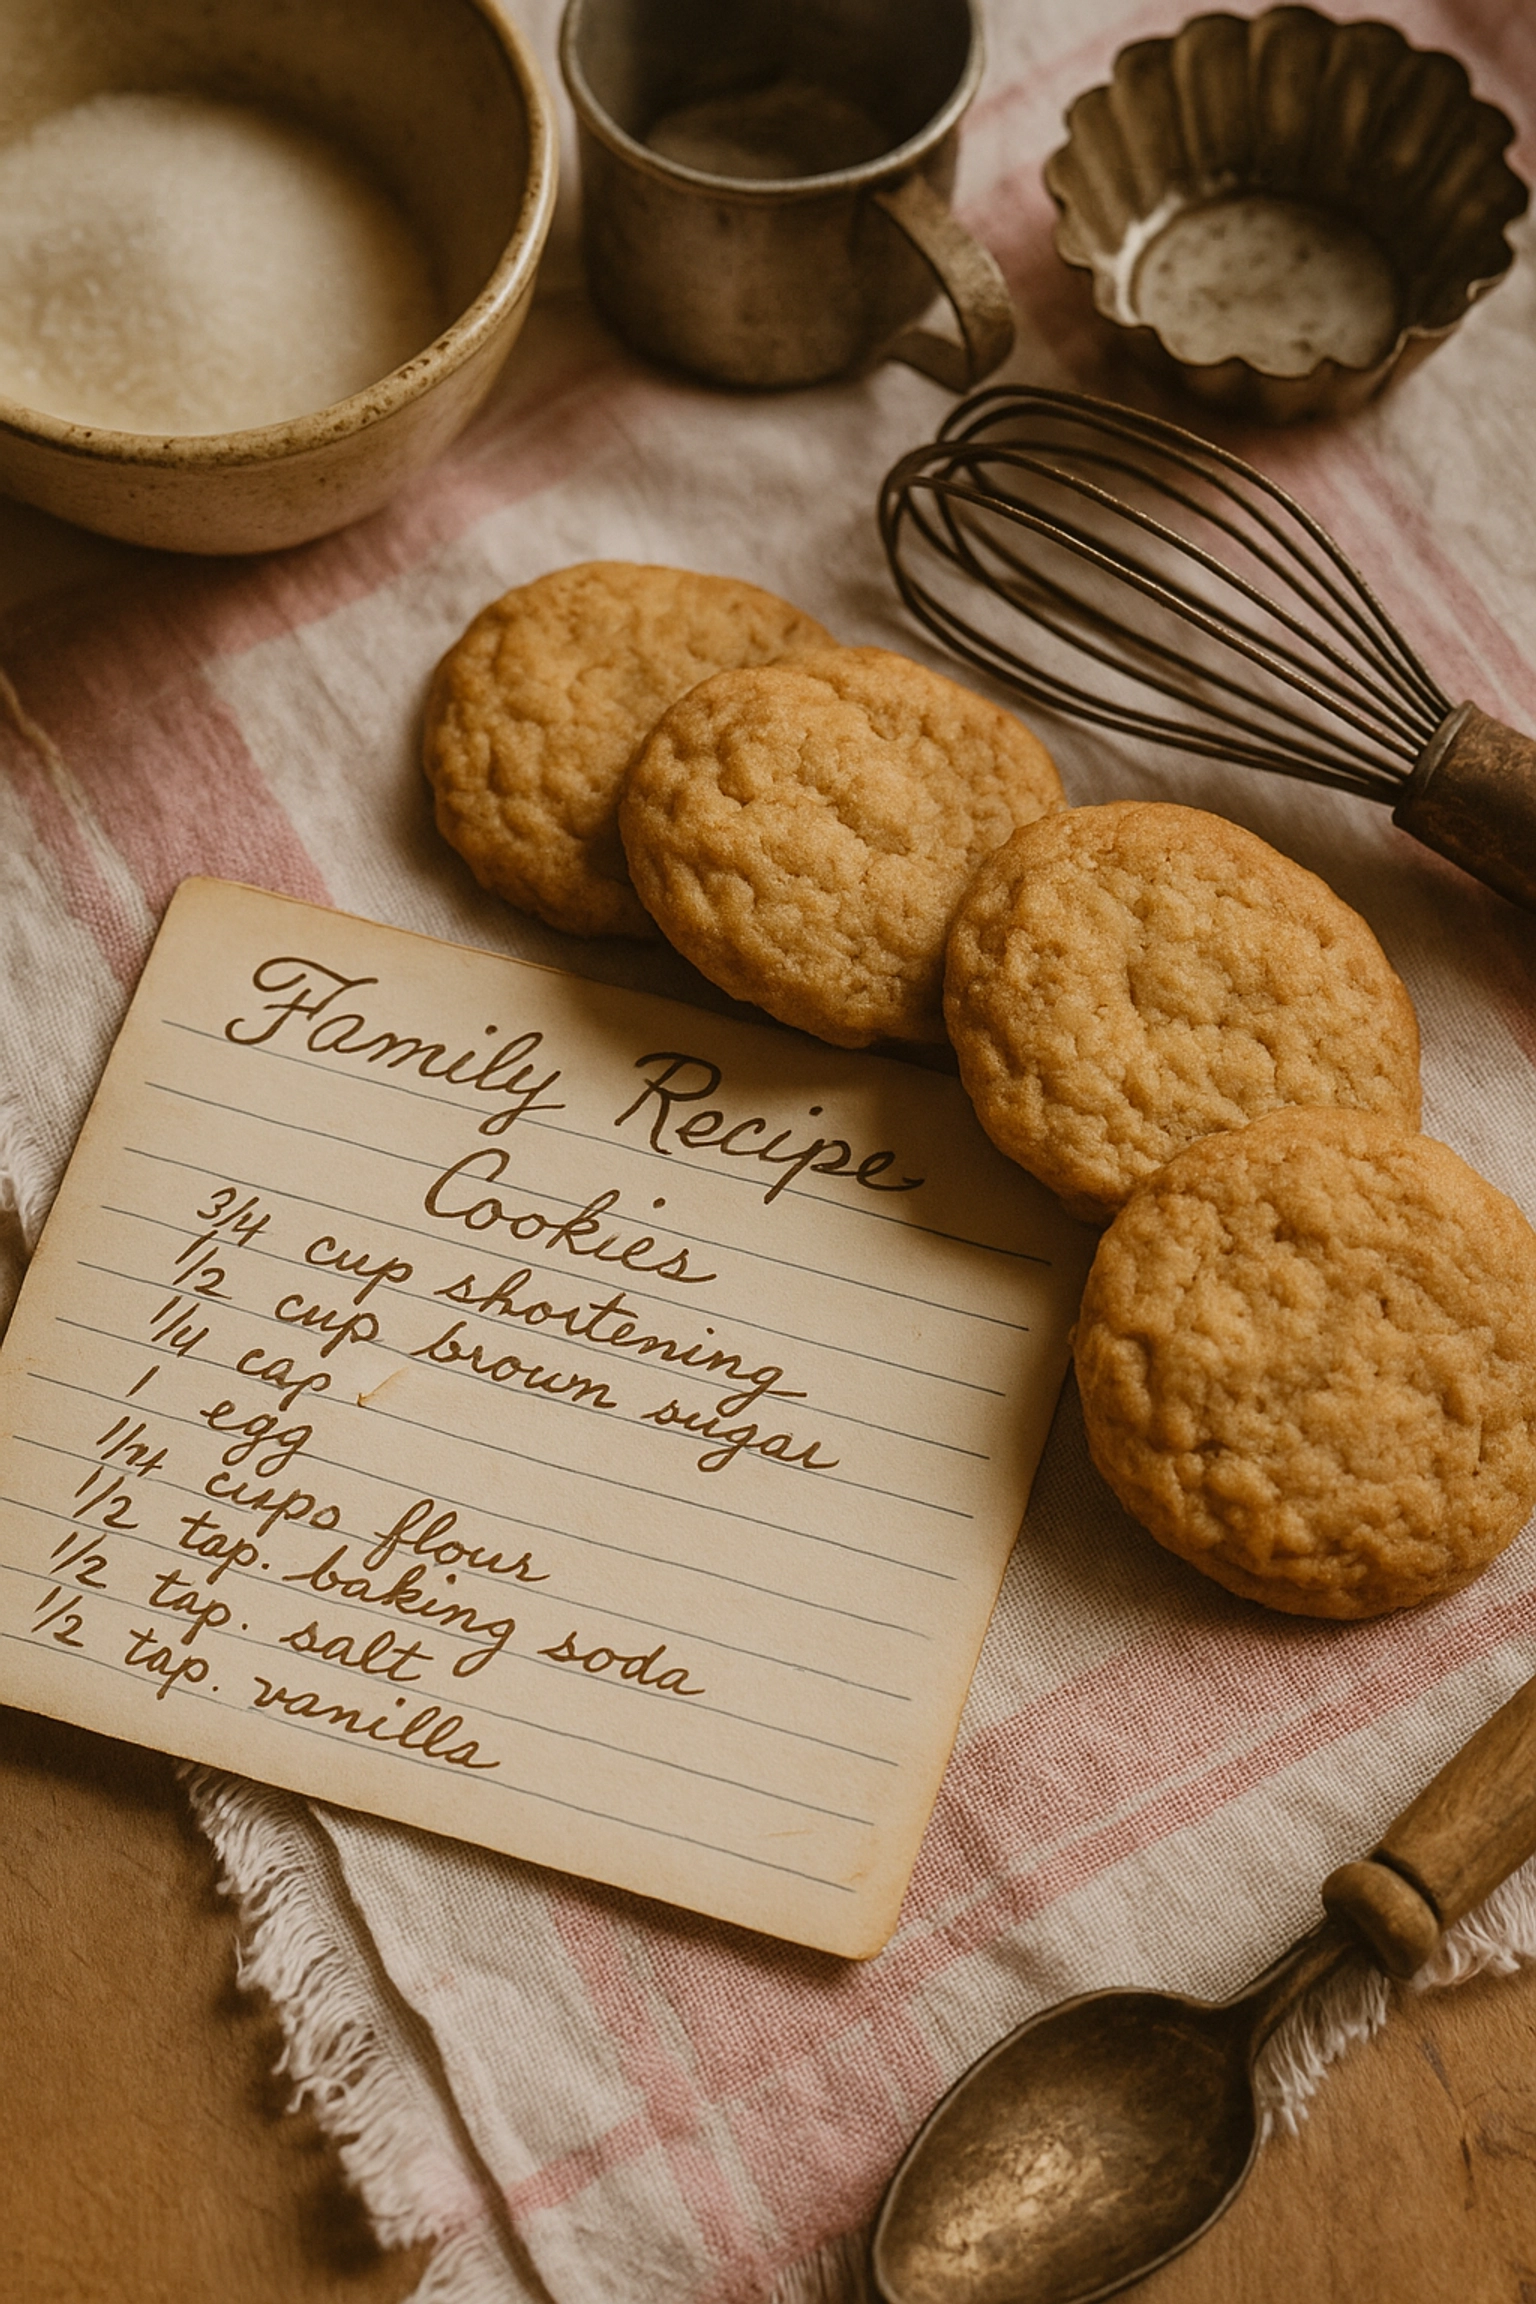 Family Recipe
Cookies
3/4 cup shortening
1/2 cup brown sugar
1/4 cap
1 egg
cups flour
1/2 tap. baking soda
1/2 tap. salt
1/2 tap. vanilla